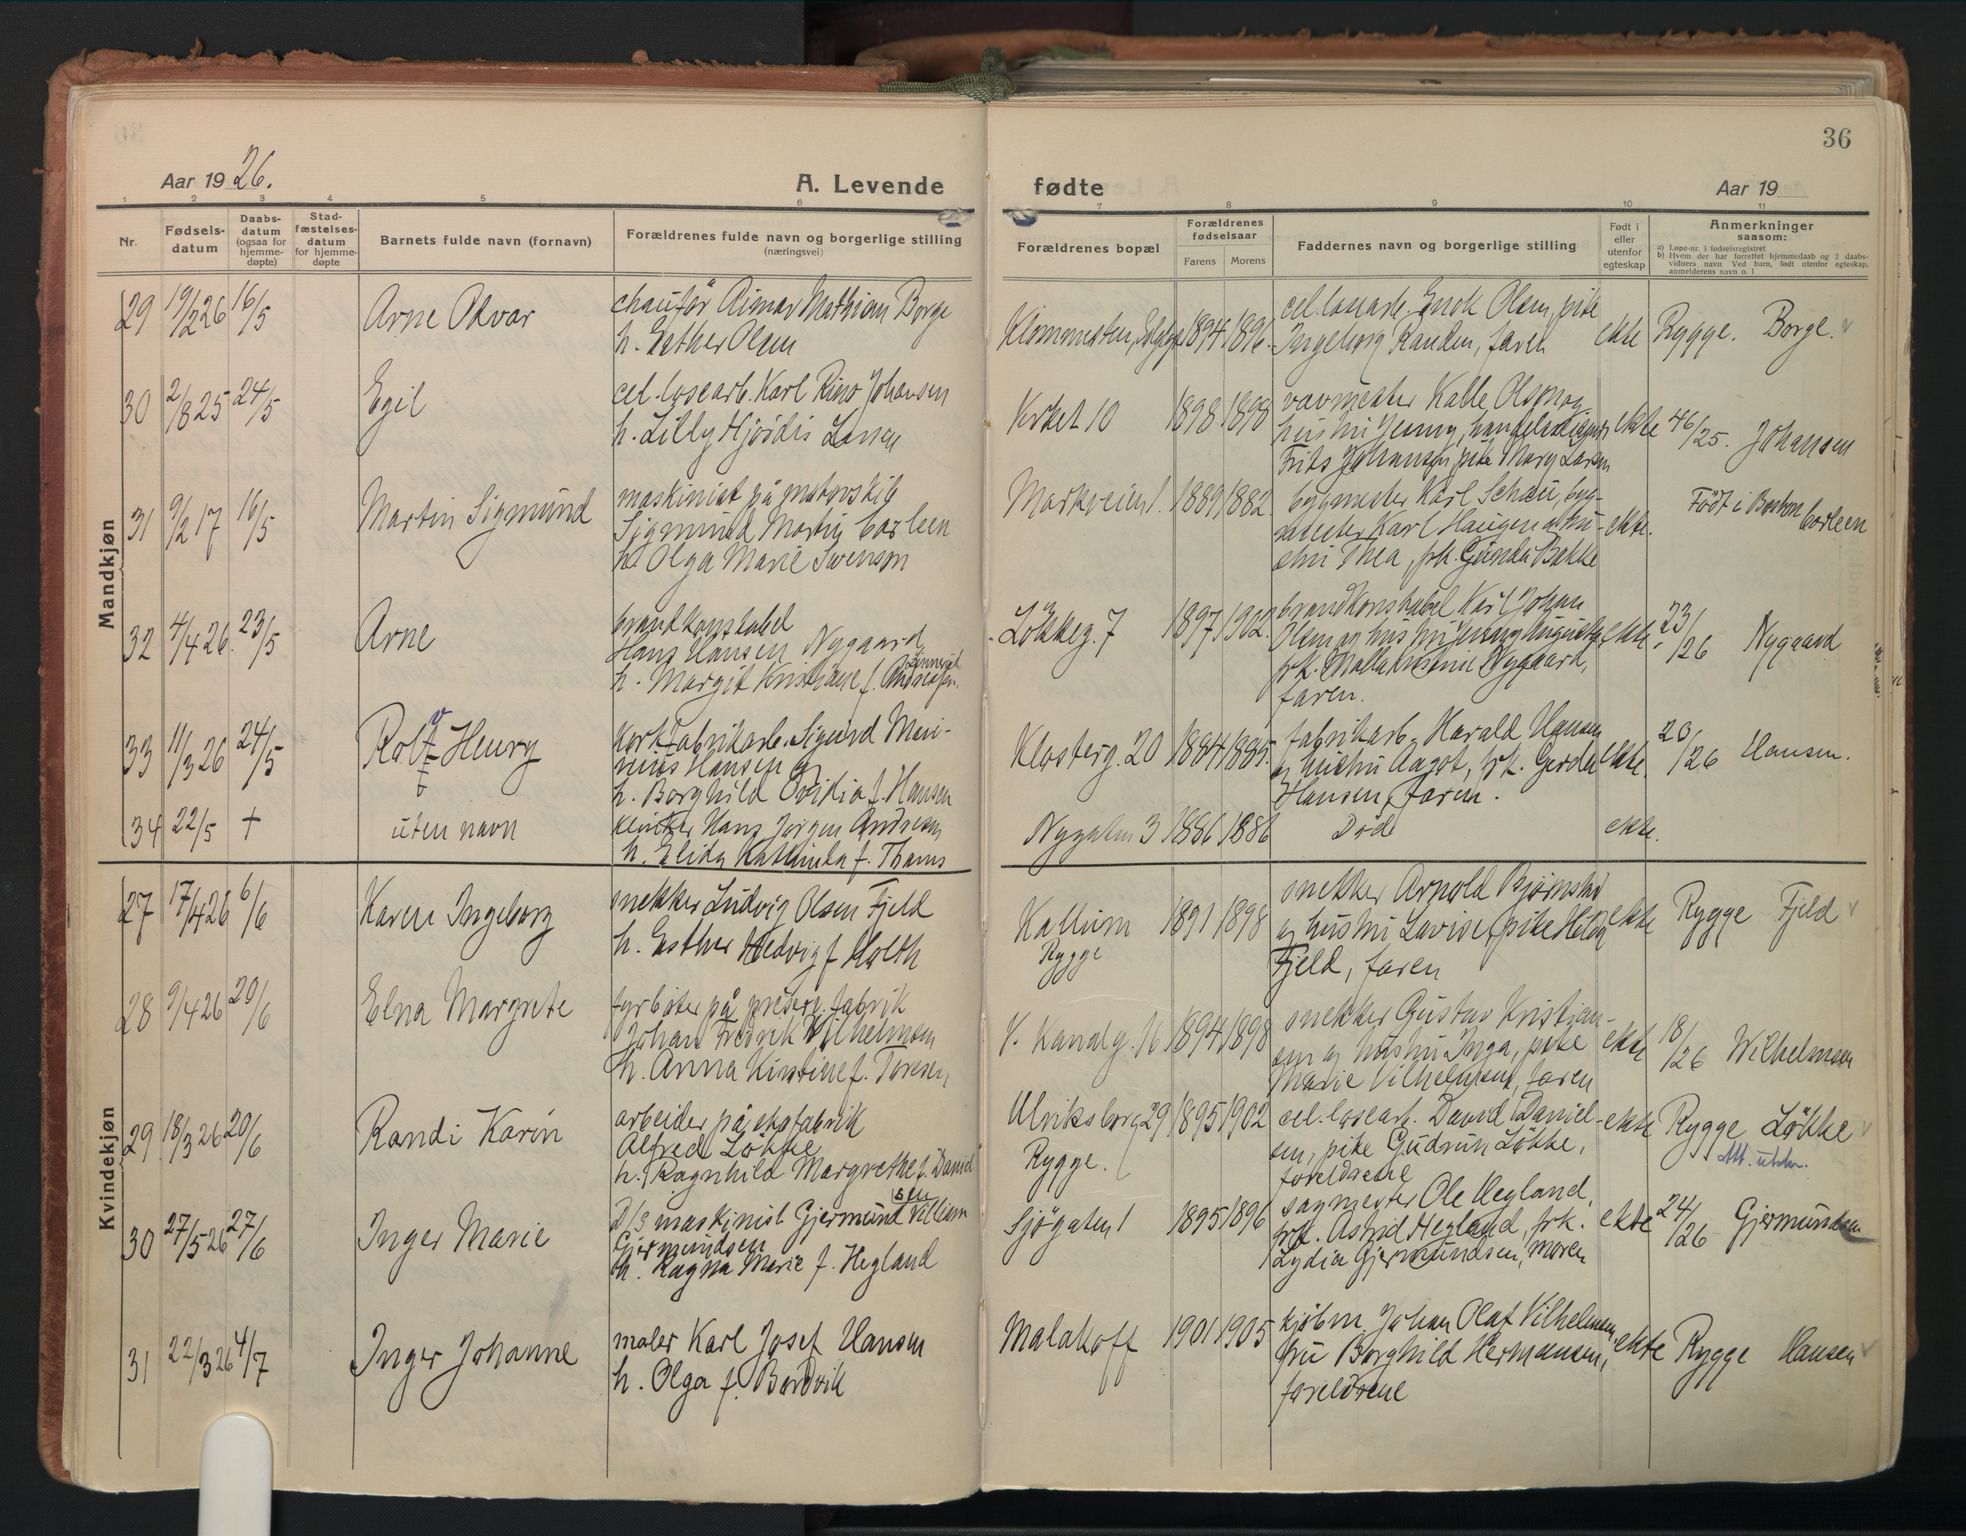 36
Aar 1926.
A. Levende fødte
Aar 19
1 2 3 4 5 6 7 8 9 10 11
Nr.
Fødsels-
datum
Daabs-
datum
(ogsaa for
hjemme-
døpte)
Stad-
fæstelses-
datum
for hjemme-
døpte
Barnets fulde navn (fornavn)
Forældrenes fulde navn og borgerlige stilling
(næringsvei)
Forældrenes bopæl
Forældrenes
fødselsaar
Farens Morens
Faddernes navn og borgerlige stilling
Født i
eller
utenfor
egteskap
Anmerkninger
saasom:
a) Løpe-nr. i fødselsregistret
b) Hvem der har forrettet hjemmedaab og 2 daabs-
vidners navn Ved barn, født utenfor egteskap,
anmelderens navn o. l
Mandkjøn
29 19/2 26 16/5 Arne
Borge
h. Esther Olsen
1894 1896.
Olsen, pike
Ingeborg Randen, faren
ekte Rygge. Borge.
30 2/8 25 24/5 Egil
cel.losearb. Karl Rino Johansen
h. Lilly Hjørdis
10 1898 1898
Kalle
Jenny,
Frits Johansen, pike Mary Larsen
ekte 46/25. Johansen
31 9/2 17 16/5 Martin Sigmund
maskinist på motorskib
Sigmund Martin Corleen
h. Olga Marie Svenson
Markveien 1. 1889 1882.
bygmester Karl Schau, byg-
mester Karl Haugen og hu-
stru Thea, frk. Gunda Bakke
ekte.
Født i Boston Corleen
32 4/4 26. 23/5 Arne
brandkonstabel
Hans Hansen Nygaard
h. Margit Kristiane f. Andreasen.
Løkkeg. 7 1897 1902.
brandkonstabel Karl Johan
Olsen og hustru Jenny Augusta,
Nygaard,
faren.
ekte. 23/26 Nygaard
33 11/3 26 24/5 Rolf Henry
v
Korkfabrikarb. Sigurd Mari-
nius Hansen og
h. Borghild Ovidia f. Hansen
Klosterg. 20 1884 1885.
fabrikarb. Harald Hansen
og hustru Aagot, frk. Gerda
Hansen, faren.
ekte. 20/26 Hansen.
34 22/5 + uten navn
Hans Jørgen Andresen
h. Elida f. Thams
Nygaten 3 1886 1886
Død
ekte.
Kvindekjøn
27 17/4 26 6/6 Karen Ingeborg
snekker Ludvig Olsen Fjeld
h. Esther Hedvig f Holth
Kallum
Rygge
1891 1898
snekker Arnold Bjørnstad
og hustru Lovise, pike Hilda
Fjeld, faren
ekte Rygge Fjeld
28 9/4 26 20/6 Elna Margrete
fyrbøter på preserv. fabrik
Johan Fredrik Vilhelmsen
h. Anna Kirstine f. Toresen,
V. Kanalg. 16 1894 1898
snekker Gustav Kristian-
sen og hustru Inga, pike
Marie Vilhelmsen, faren
ekte 18/26 Wilhelmsen
29 18/3 26 20/6 Randi Karin
arbeider på skofabrik
Alfred Løkke
h. Ragnhild Margrethe f. Daniel
sen
Ulriksborg 29
Rygge.
1895 1902
cel.losearb. David Daniel-
sen, pike Gudrun Løkke,
foreldrene
ekte Rygge Løkke
Att. utst.
30 27/5 26 27/6 Inger Marie
D/s maskinist Gjermund Villiam
Gjermundsen
h. Ragna Marie f. Hegland
Sjøgaten 1 1895 1896
sagmester Ole Hegland,
frk. Astrid Hegland, frk.
Lydia Gjermundsen, moren
ekte 24/26 Gjermundsen
31 22/3 26 4/7 Inger Johanne
maler Karl Josef Hansen
h. Olga f. Bordvik
Malakoff 1901 1905
kjøbm. Johan Olaf Vilhelmsen,
fru Borghild Hermansen,
foreldrene
ekte Rygge Hansen